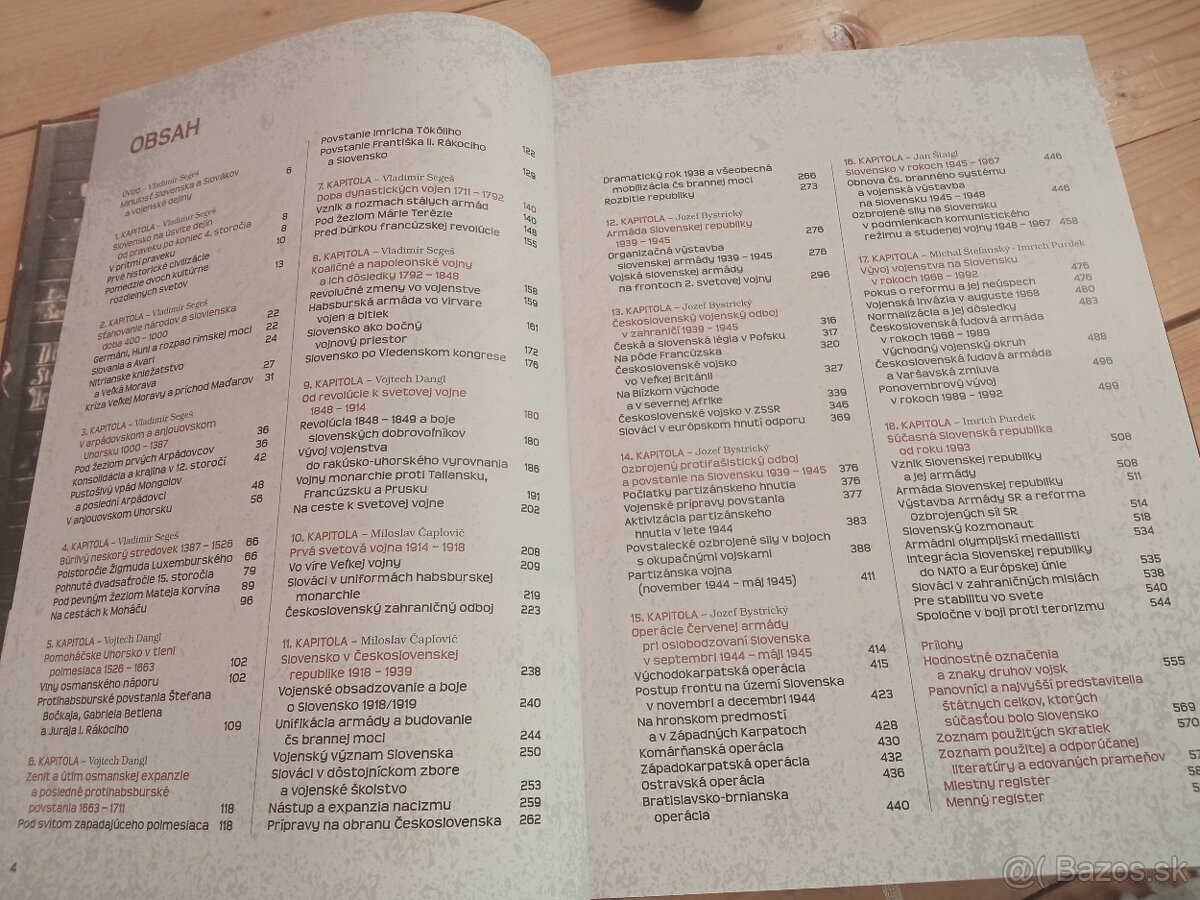 OBSAH
Úvod – Vladimír Segeš
Minulosť Slovenska a Slovákov
a vojenské dejiny 6
1. KAPITOLA – Vladimír Segeš
Slovensko na úsvite dejín
Od praveku po koniec 4. storočia 8
V prítmí praveku 8
Prvé historické civilizácie 10
Pomedzie dvoch kultúrne
rozdielnych svetov 13
2. KAPITOLA – Vladimír Segeš
Stanovanie národov a slovienska
doba 400 – 1000 22
Germáni, Huni a rozpad rímskej moci 22
Slovania a Avari 24
Nitrianske kniežatstvo
a Veľká Morava 27
Kríza Veľkej Moravy a príchod Maďarov 31
3. KAPITOLA – Vladimír Segeš
V arpádovskom a anjouovskom
Uhorsku 1000 – 1387 36
Pod žezlom prvých Arpádovcov 36
Konsolidácia a krajina v 12. storočí 42
Pustošivý vpád Mongolov
a poslední Arpádovci 48
V anjouovskom Uhorsku 56
4. KAPITOLA – Vladimír Segeš
Búrlivý neskorý stredovek 1387 – 1526 66
Polstoročie Žigmuda Luxemburského 66
Pohnuté dvadsaťročie 15. storočia 79
Pod pevným žezlom Mateja Korvína 89
Na cestách k Moháču 96
5. KAPITOLA – Vojtech Dangl
Pomoháčske Uhorsko v tieni
polmesiaca 1526 – 1663 102
Vlny osmanského náporu 102
Protihabsburské povstania Štefana
Bočkaja, Gabriela Betlena
a Juraja I. Rákociho 109
6. KAPITOLA – Vojtech Dangl
Zenit a útlm osmanskej expanzie
a posledné protihabsburské
povstania 1663 – 1711 118
Pod svitom zapadajúceho polmesiaca 118
4
Povstanie Imricha Tököliho
Povstanie Františka II. Rákociho 122
a Slovensko 129
7. KAPITOLA – Vladimír Segeš
Doba dynastických vojen 1711 – 1792
Vznik a rozmach stálych armád 140
Pod žezlom Márie Terézie 140
Pred búrkou francúzskej revolúcie 148
155
8. KAPITOLA – Vladimír Segeš
Koaličné a napoleonské vojny
a ich dôsledky 1792 – 1848
Revolučné zmeny vo vojenstve 158
Habsburská armáda vo vírvare 159
vojen a bitiek
Slovensko ako bočný 161
vojnový priestor
Slovensko po Viedenskom kongrese 172
176
9. KAPITOLA – Vojtech Dangl
Od revolúcie k svetovej vojne
1848 – 1914 180
Revolúcia 1848 – 1849 a boje
slovenských dobrovoľníkov 180
Vývoj vojenstva
do rakúsko-uhorského vyrovnania 186
Vojny monarchie proti Taliansku,
Francúzsku a Prusku 191
Na ceste k svetovej vojne 202
10. KAPITOLA – Miloslav Čaplovič
Prvá svetová vojna 1914 – 1918 208
Vo víre Veľkej vojny 209
Slováci v uniformách habsburskej
monarchie 219
Československý zahraničný odboj 223
11. KAPITOLA – Miloslav Čaplovič
Slovensko v Československej
republike 1918 – 1939 238
Vojenské obsadzovanie a boje
o Slovensko 1918/1919 240
Unifikácia armády a budovanie
čs brannej moci 244
Vojenský význam Slovenska 250
Slováci v dôstojníckom zbore
a vojenské školstvo 253
Nástup a expanzia nacizmu 259
Prípravy na obranu Československa 262
Dramatický rok 1938 a všeobecná
mobilizácia čs brannej moci 266
Rozbitie republiky 273
12. KAPITOLA – Jozef Bystrický
Armáda Slovenskej republiky
1939 – 1945 276
Organizačná výstavba
slovenskej armády 1939 – 1945 276
Vojská slovenskej armády
na frontoch 2. svetovej vojny 296
13. KAPITOLA – Jozef Bystrický
Československý vojenský odboj
v zahraničí 1939 – 1945 316
Česká a slovenská légia v Poľsku 317
Na pôde Francúzska 320
Československé vojsko
vo Veľkej Británii 327
Na Blízkom východe
a v severnej Afrike 339
Československé vojsko v ZSSR 346
Slováci v európskom hnutí odporu 369
14. KAPITOLA – Jozef Bystrický
Ozbrojený protifašistický odboj
a povstanie na Slovensku 1939 – 1945 376
Počiatky partizánskeho hnutia 376
Vojenské prípravy povstania 377
Aktivizácia partizánskeho
hnutia v lete 1944 383
Povstalecké ozbrojené sily v bojoch
s okupačnými vojskami 388
Partizánska vojna
(november 1944 – máj 1945) 411
15. KAPITOLA – Jozef Bystrický
Operácie Červenej armády
pri oslobodzovaní Slovenska
v septembri 1944 – máji 1945 414
Východokarpatská operácia 415
Postup frontu na území Slovenska
v novembri a decembri 1944 423
Na hronskom predmostí
a v Západných Karpatoch 428
Komárňanská operácia 430
Západokarpatská operácia 432
Ostravská operácia 436
Bratislavsko-brnianska
operácia 440
16. KAPITOLA – Jan Štaigl
Slovensko v rokoch 1945 – 1967 446
Obnova čs. branného systému
a vojenská výstavba
na Slovensku 1945 – 1948 446
Ozbrojené sily na Slovensku
v podmienkach komunistického
režimu a studenej vojny 1948 – 1967 458
17. KAPITOLA – Michal Štefanský - Imrich Purdek
Vývoj vojenstva na Slovensku
v rokoch 1968 – 1992 476
Pokus o reformu a jej neúspech 476
Vojenská invázia v auguste 1968 480
Normalizácia a jej dôsledky 483
Československá ľudová armáda
v rokoch 1968 – 1989
Východný vojenský okruh 488
Československá ľudová armáda
a Varšavská zmluva 496
Ponovembrový vývoj
v rokoch 1989 – 1992 499
18. KAPITOLA – Imrich Purdek
Súčasná Slovenská republika
od roku 1993 508
Vznik Slovenskej republiky
a jej armády 508
Armáda Slovenskej republiky 511
Výstavba Armády SR a reforma
Ozbrojených síl SR 514
Slovenský kozmonaut 518
Armádni olympijskí medailisti 534
Integrácia Slovenskej republiky
do NATO a Európskej únie 535
Slováci v zahraničných misiách 538
Pre stabilitu vo svete 540
Spoločne v boji proti terorizmu 544
Prílohy
Hodnostné označenia
a znaky druhov vojsk 555
Panovníci a najvyšší predstavitelia
štátnych celkov, ktorých
súčasťou bolo Slovensko 569
Zoznam použitých skratiek 570
Zoznam použitej a odporúčanej
literatúry a edovaných prameňov
Miestny register
Menný register
@( Bazos.sk